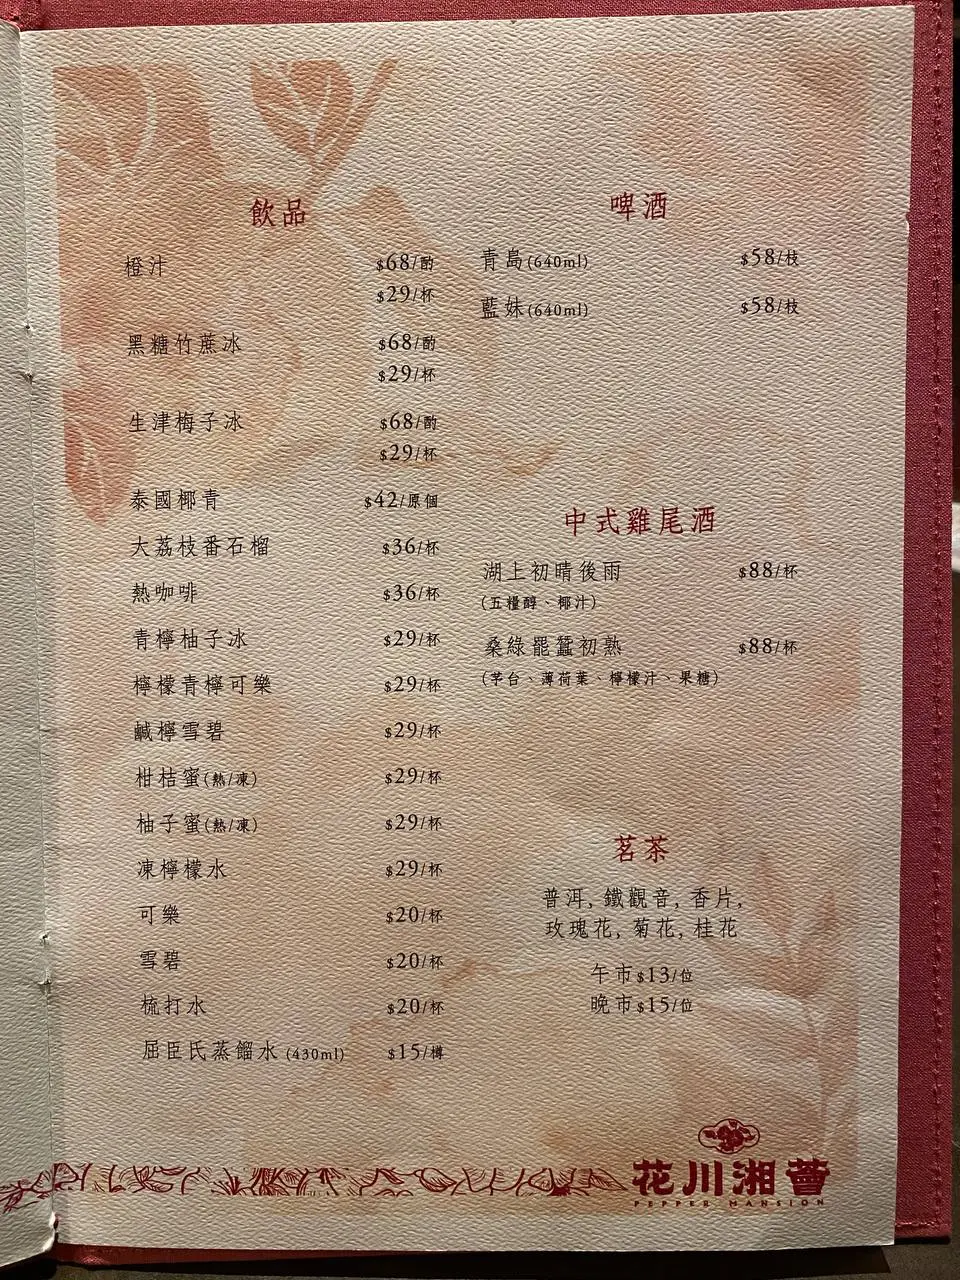 飲品
橙汁 $68/酌
$29/杯
黑糖竹蔗冰 $68/酌
$29/杯
生津梅子冰 $68/酌
$29/杯
泰國椰青 $42/原個
大荔枝番石榴 $36/杯
熱咖啡 $36/杯
青檸柚子冰 $29/杯
檸檬青檸可樂 $29/杯
鹹檸雪碧 $29/杯
柑桔蜜(熱/凍) $29/杯
柚子蜜(熱/凍) $29/杯
凍檸檬水 $29/杯
可樂 $20/杯
雪碧 $20/杯
梳打水 $20/杯
屈臣氏蒸餾水 (430ml) $15/樽
啤酒
青島(640ml) $58/枝
藍妹(640ml) $58/枝
中式雞尾酒
湖上初晴後雨 $88/杯
(五糧醇、椰汁)
桑綠罷蠶初熟 $88/杯
(芋台、薄荷葉、檸檬汁、果糖)
茗茶
普洱, 鐵觀音, 香片,
玫瑰花, 菊花, 桂花
午市$13/位
晚市$15/位
花川湘薈
PEPPER MANSION